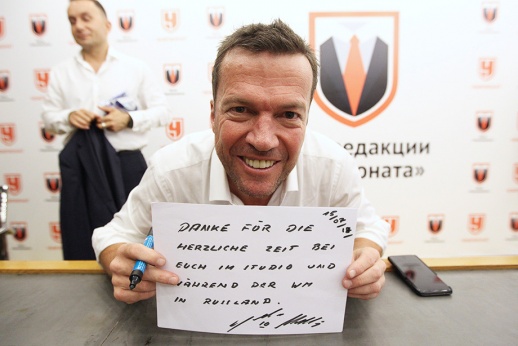 едакции
оната»
15/07/18
DANKE FÜR DIE
HERZLICHE ZEIT BEI
EUCH IM STUDIO UND
WÄHREND DER WM
IN RUSSLAND.
10